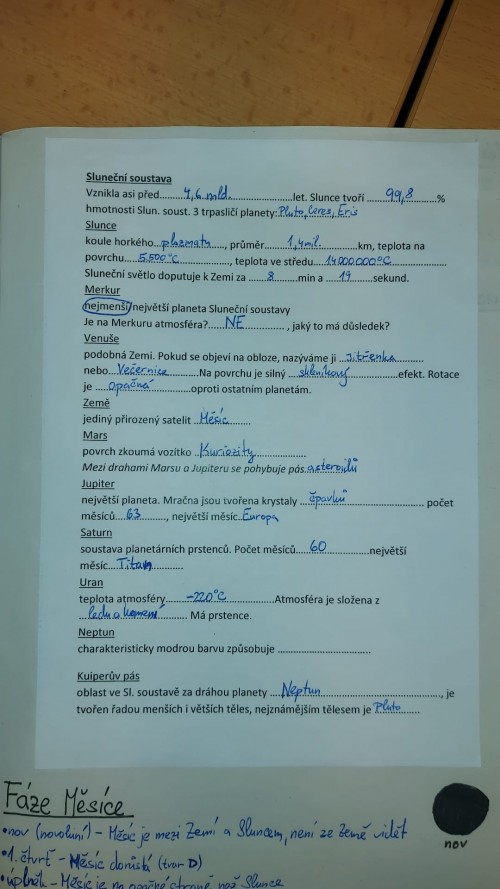 Sluneční soustava
Vznikla asi před....4,6 mld.................let. Slunce tvoří ....99,8........%
hmotnosti Slun. soust. 3 trpasličí planety: Pluto, Ceres, Eris
Slunce
koule horkého...plazmatu...., průměr.......1,4 mil.........km, teplota na
povrchu....5.500°C............, teplota ve středu..14 000 000°C............
Sluneční světlo doputuje k Zemi za ....8.......min a ..19........sekund.
Merkur
nejmenší/největší planeta Sluneční soustavy
Je na Merkuru atmosféra?....NE............ , jaký to má důsledek?
Venuše
podobná Zemi. Pokud se objeví na obloze, nazýváme ji ...Jitřenka........
nebo...Večernice.......Na povrchu je silný ...skleníkový............efekt. Rotace
je ....opačná...........oproti ostatním planetám.
Země
jediný přirozený satelit ..Měsíc..........
Mars
povrch zkoumá vozítko ..Kuriozity.............
Mezi drahami Marsu a Jupiteru se pohybuje pás.asteroidů
Jupiter
největší planeta. Mračna jsou tvořena krystaly ...čpavků................ počet
měsíců....63........, největší měsíc.Europa
Saturn
soustava planetárních prstenců. Počet měsíců....60............největší
měsíc...Titan...........
Uran
teplota atmosféry.......-220°C............Atmosféra je složena z
...ledu a kamení....... Má prstence.
Neptun
charakteristicky modrou barvu způsobuje ...............................
Kuiperův pás
oblast ve Sl. soustavě za dráhou planety ....Neptun..........................., je
tvořen řadou menších i větších těles, nejznámějším tělesem je Pluto......
Fáze Měsíce
•nov (novoluní) – Měsíc je mezi Zemí a Sluncem, není ze Země vidět
nov
•1. čtvrť – Měsíc dorůstá (tvar D)
•úplněk – Měsíc je na opačné straně než Slunce